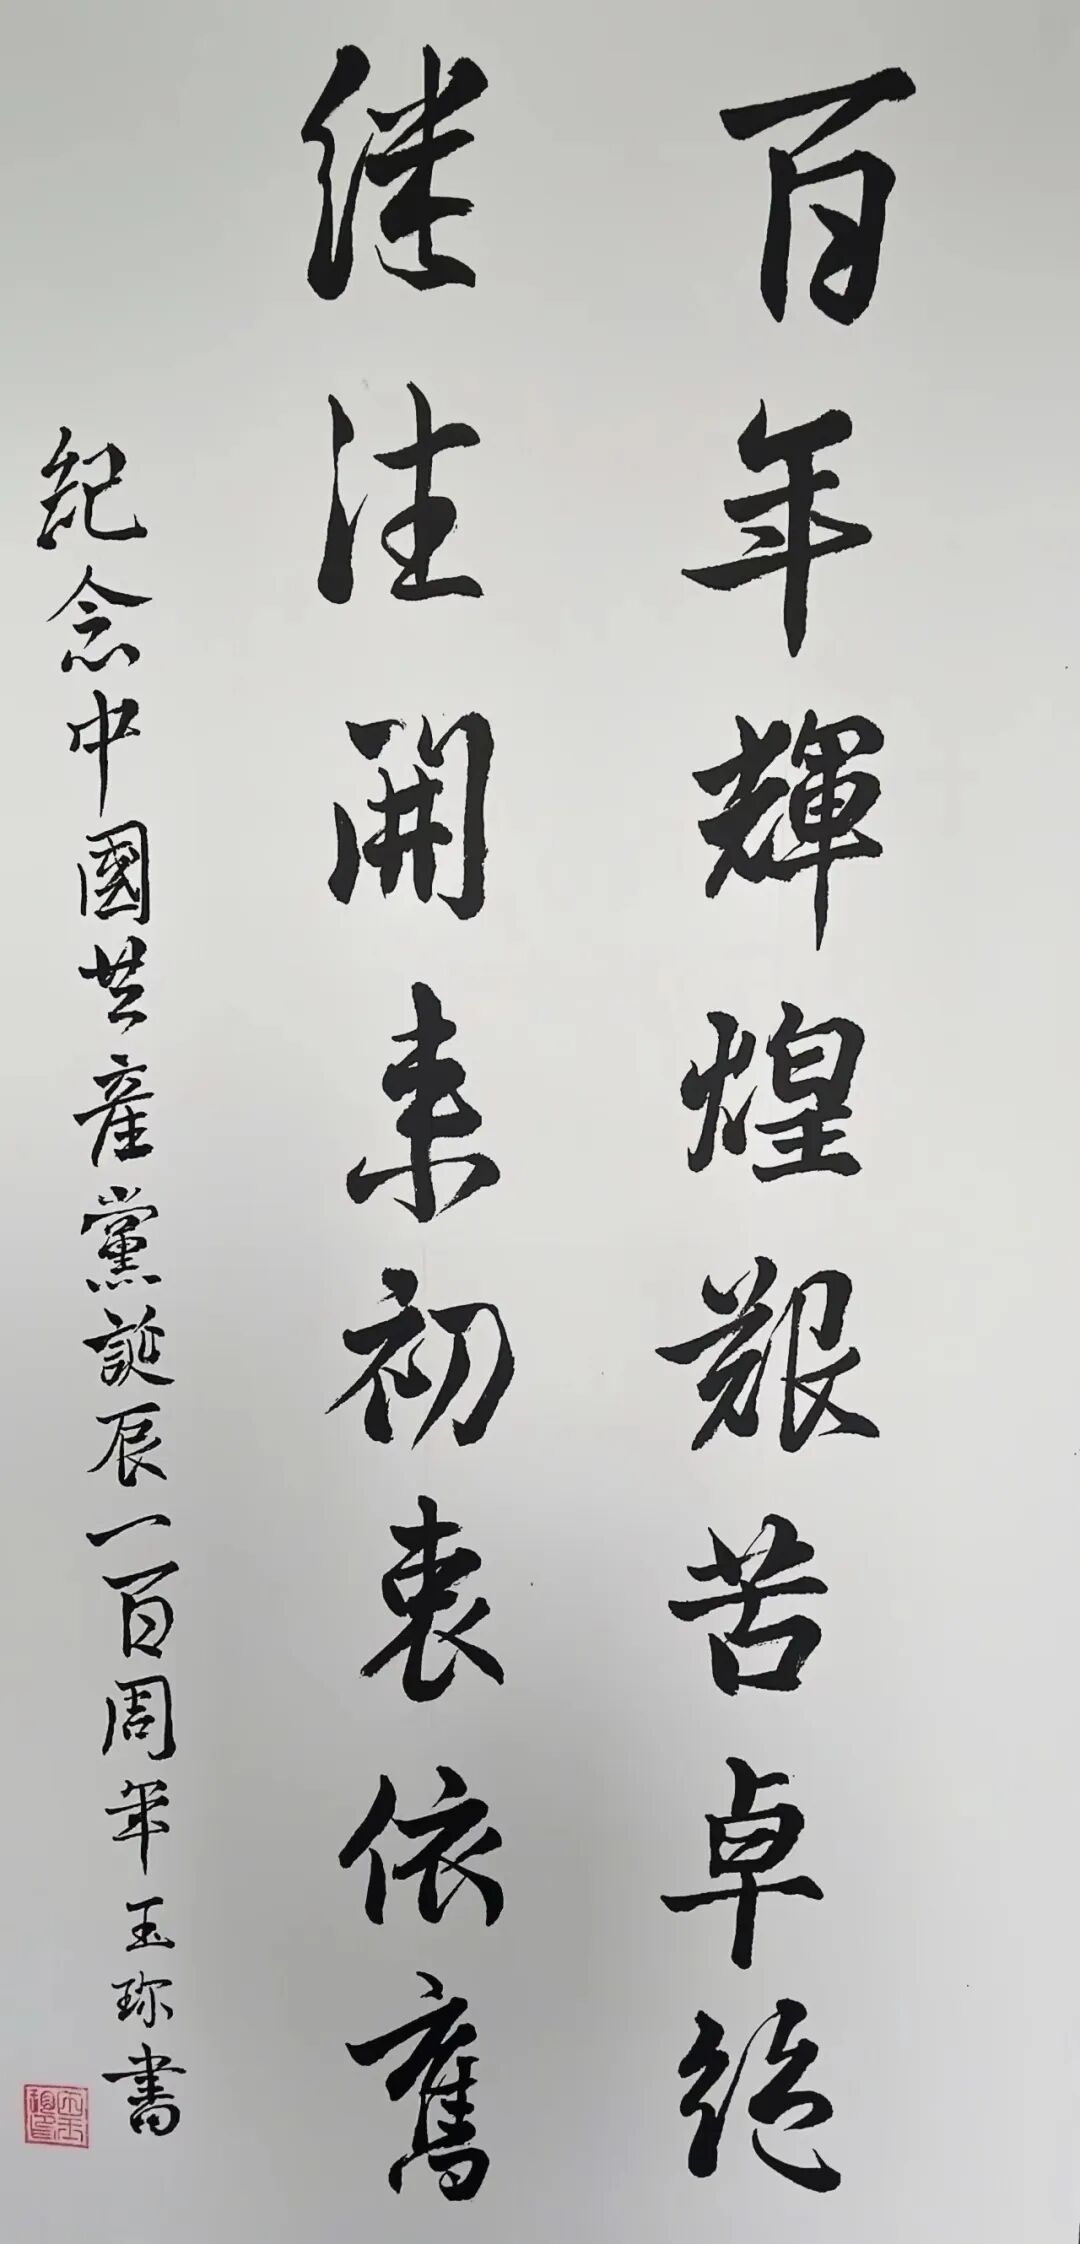 百年輝煌艱苦卓絕
继往開来初衷依舊
紀念中國共産黨誕辰一百周年玉珍書